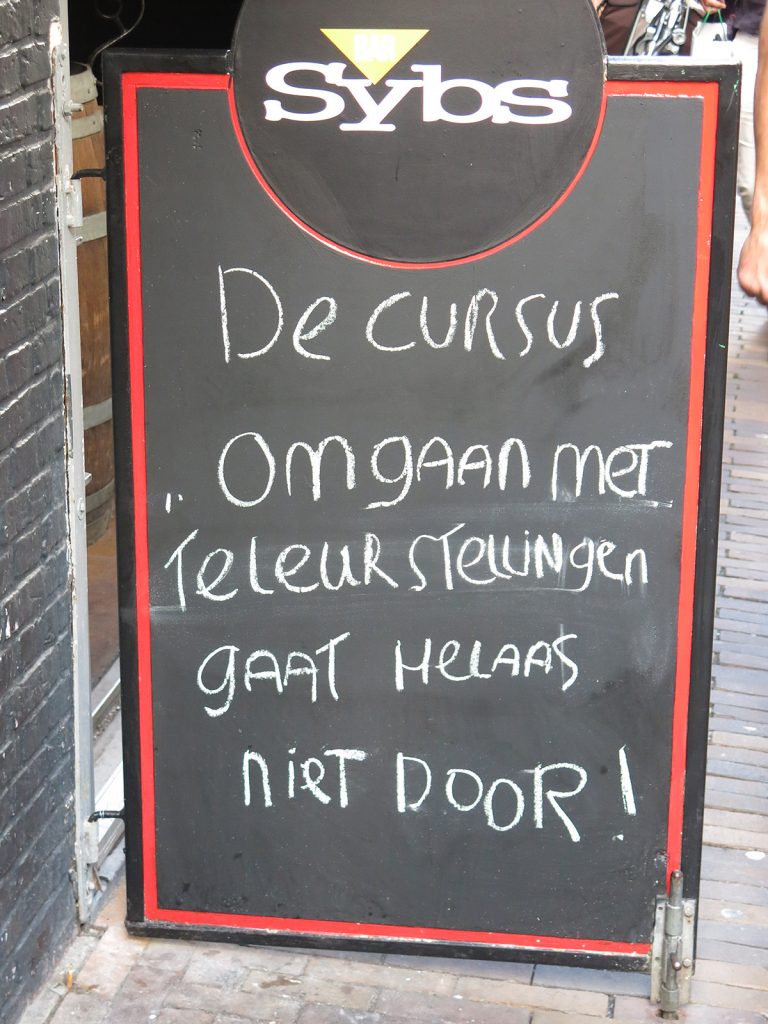 BAR
Sybs
De cursus
„omgaan met
Teleurstellingen
gaat helaas
niet door!